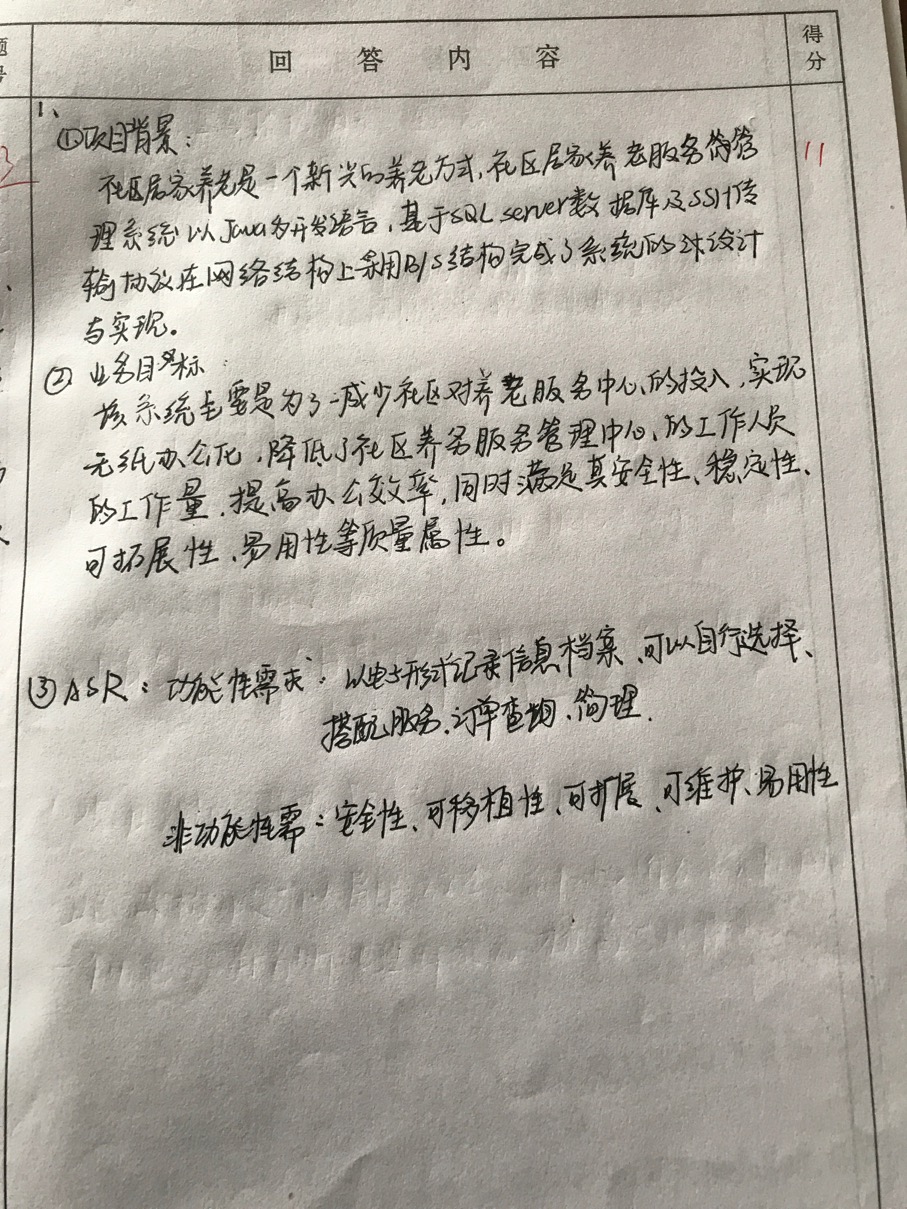 题号
回答内容
得分
1、
①项目背景：
11
社区居家养老是一个新兴的养老方式，社区居家养老服务管
理系统以Java为开发语言，基于SQL server数据库及SSH传
输协议在网络结构上采用B/S结构完成了系统的设计
与实现。
②业务目标：
该系统主要是为了减少社区对养老服务中心的投入，实现
无纸办公化，降低了社区养务服务管理中心的工作人员
的工作量，提高办公效率，同时满足其安全性、稳定性、
可拓展性、易用性等质量属性。
③ASR：功能性需求：以电子形式记录信息档案、可以自行选择、
搭配服务、订单查询、管理.
非功能性需：安全性、可移植性、可扩展、可维护、易用性